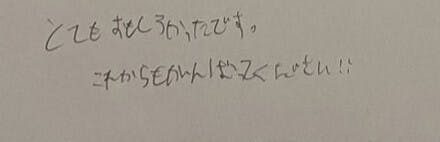 とてもおもしろかったです。
これからもがんばってください!!